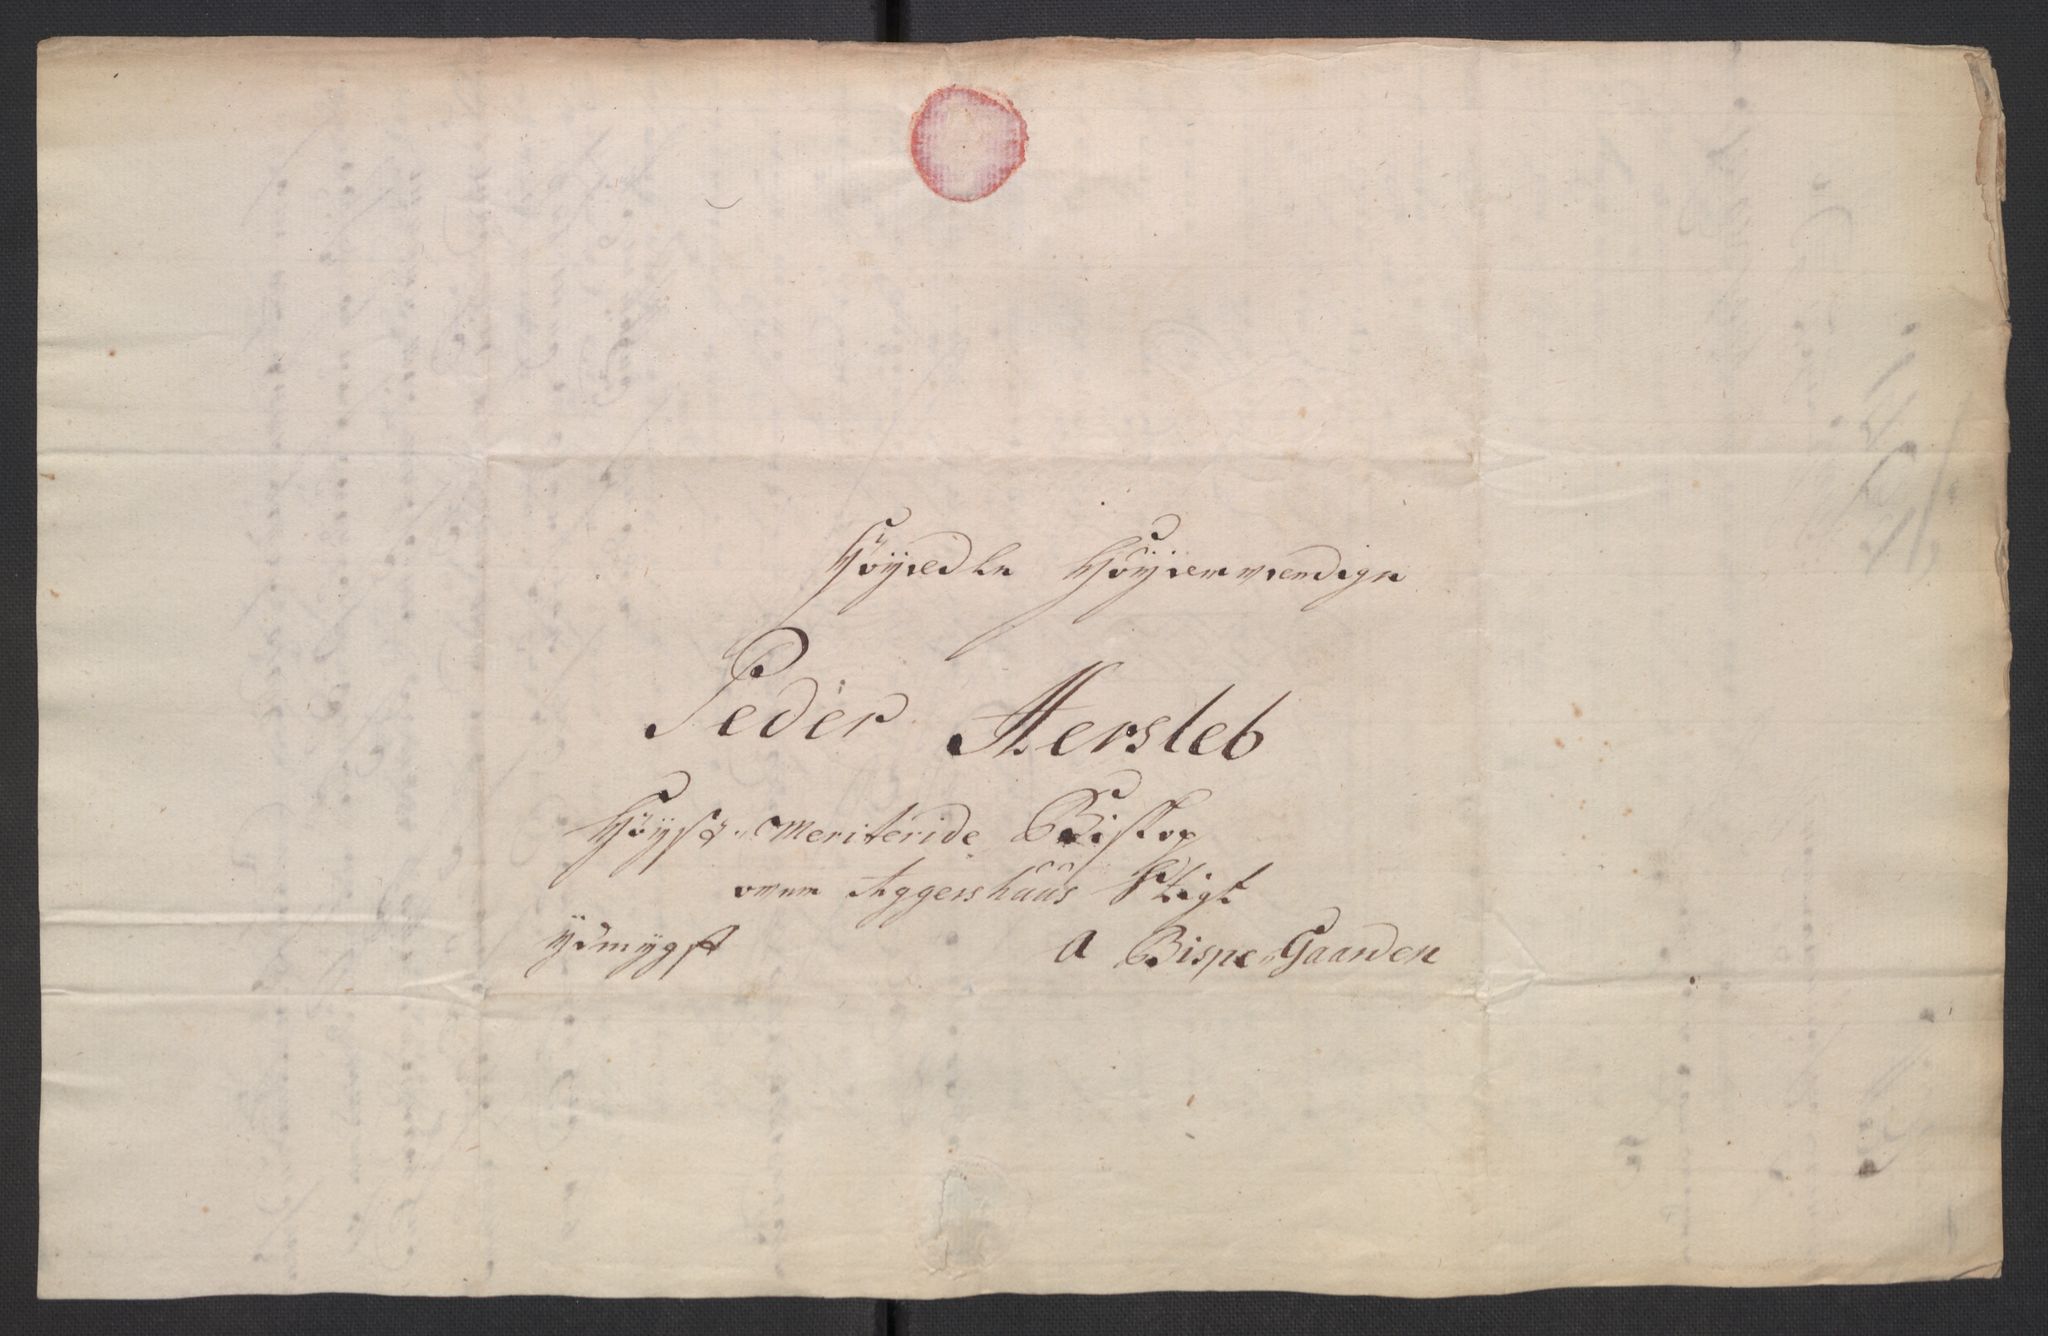 Høyædle Høyærværdige
Peder Hersleb
Høyst Meriterede Biskop
over Aggershuus Stigt
ydmygst a Bispe Gaarden